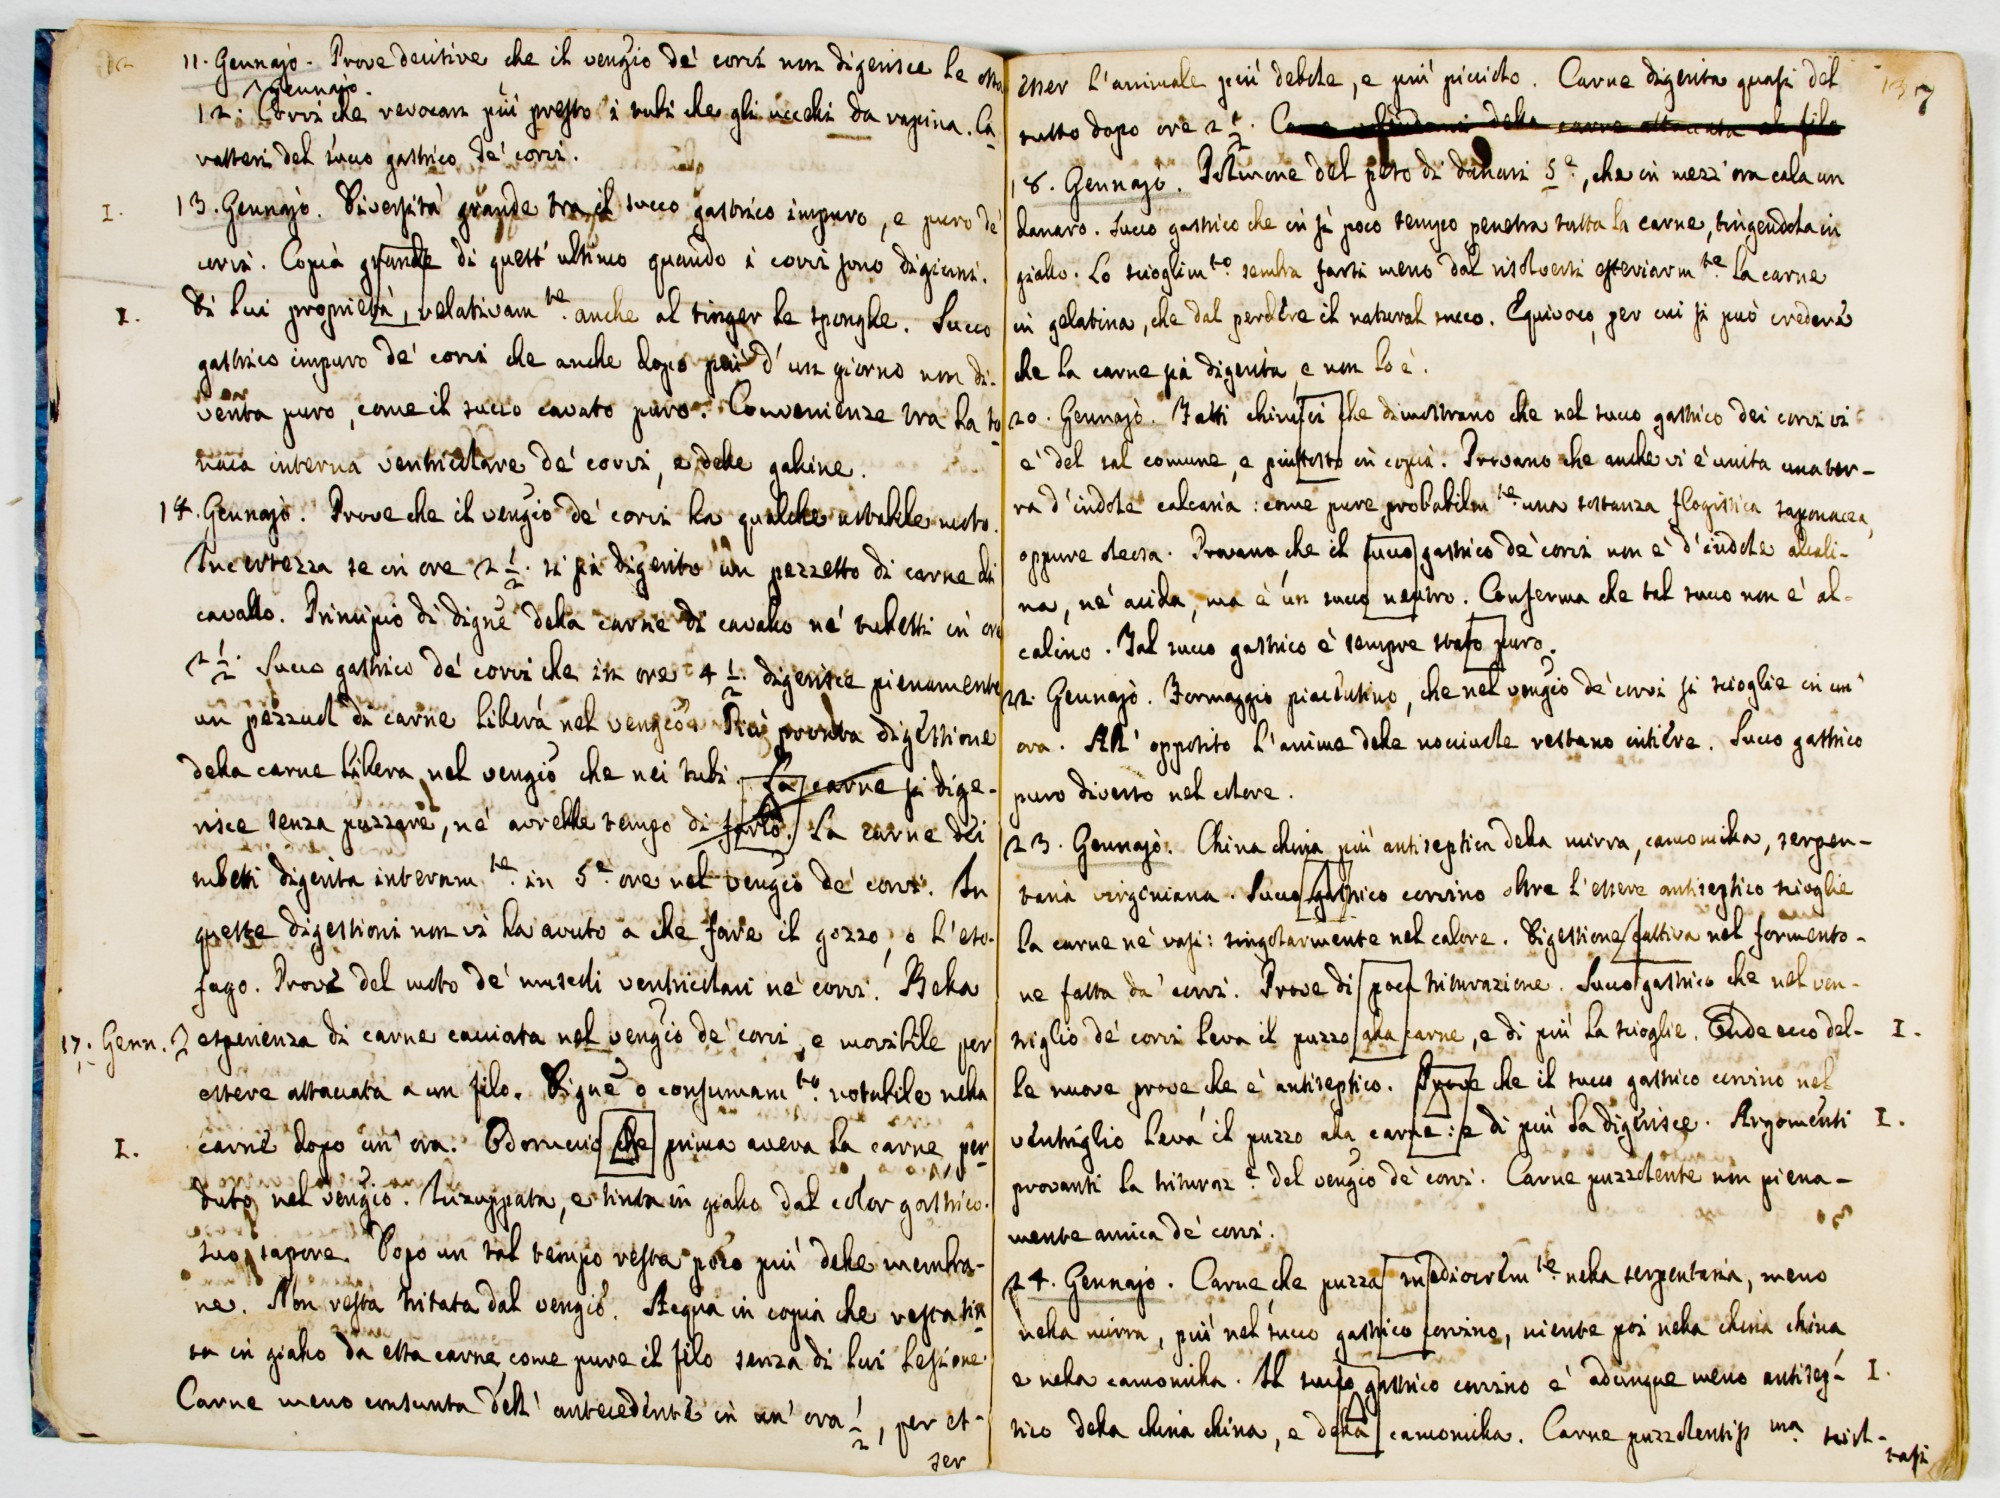 11. Gennajo. Prove decisive che il vengio de' corvi non digerisce le ossa
Gennajo.
12. Corvi che revocan più presto i tubi che gli uccelli da rapina. Ca
ratteri del succo gastrico de' corvi.
I. 13. Gennajo. Diversità grande tra il succo gastrico impuro, e puro de'
corvi. Copia grande di quest' ultimo quando i corvi sono digiuni.
I. Di lui proprietà, relativam te. anche al tinger le sponghe. Succo
gastrico impuro de' corvi che anche dopo più d' un giorno non di-
venta puro, come il succo cavato puro. Convenienze tra la to
naca interna ventricolare de' corvi, e delle galline.
14. Gennajo. Prove che il vengio de' corvi ha qualche notabile moto.
Incertezza se in ore 2 1/2. si sia digerito un pezzetto di carne di
cavallo. Principio di digne della carne di cavallo ne' tubetti in ore
2 1/2. Succo gastrico de' corvi che in ore 4 1/2. digerisce pienamente
un pezzuol di carne libera nel vengio. Più pronta digestione
della carne libera nel vengio che nei tubi. La carne si dige-
risce senza puzzare, ne' avrebbe tempo di farlo. La carne dei
tubetti digerita interam te. in 5 e. ore nel vengio de' corvi. In
queste digestioni non vi ha avuto a che fare il gozzo, o l'eso-
fago. Prove del moto de' muscoli ventricolari ne' corvi. Bella
17. Genn. esperienza di carne cacciata nel vengio de' corvi, e movibile per
essere attaccata a un filo. Digne o consumam to. notabile nella
I. carne dopo un' ora. Odoruccio che prima aveva la carne, per
duto nel vengio. Inzuppata, e tinta in giallo dal color gastrico.
suo sapore. Dopo un tal tempo resta poco più delle membra-
ne. Non resta tritata dal vengio. Acqua in copia che resta tin
ta in giallo da essa carne, come pure il filo senza di lui lesione.
Carne meno consunta dell' antecedente in un' ora 1/2, per es-
ser
7
esser l'animale più debole, e più picciolo. Carne digerita quasi del
tutto dopo ore 2 1/2. della carne attaccata al filo
18. Gennajo. Polmone del peso di danari 5 e., che in mezz' ora cala un
danaro. Succo gastrico che in sì poco tempo penetra tutta la carne, tingendola in
giallo. Lo scioglim to. sembra farsi meno dal risolversi esteriorm te. la carne
in gelatina, che dal perdere il natural succo. Equivoco, per cui si può credere
che la carne sia digerita, e non lo è.
20. Gennajo. Fatti chimici che dimostrano che nel succo gastrico dei corvi vi
e' del sal comune, e piuttosto in copia. Provano che anche vi è unita una ter-
ra d'indole calcaria: come pure probabilm te. una sostanza flogistica saponacea,
oppure oleosa. Provano che il succo gastrico de' corvi non è d'indole alcali-
na, ne' acida, ma è un succo neutro. Conferma che tal succo non è al-
calino. Tal succo gastrico è sempre stato puro.
22. Gennajo. Formaggio piacentino, che nel vengio de' corvi si scioglie in un'
ora. All' opposito l'anime delle nocciuole restano intiere. Succo gastrico
puro diverso nel colore.
23. Gennajo. China china più antiseptica della mirra, camomilla, serpen-
taria virginiana. Succo gastrico corvino oltre l'essere antiseptico scioglie
la carne ne' vasi: singolarmente nel calore. Digestione fattiva nel formento-
ne fatta da' corvi. Prove di poca triturazione. Succo gastrico che nel ven-
triglio de' corvi leva il puzzo alla carne, e di più la scioglie. Onde ecco del- I.
le nuove prove che è antiseptico. Prove che il succo gastrico corvino nel
ventriglio leva il puzzo alla carne: e di più la digerisce. Argomenti I.
provanti la trituraz e. del vengio de' corvi. Carne puzzolente non piena-
mente amica de' corvi.
24. Gennajo. Carne che puzza mediocrem te. nella serpentaria, meno
nella mirra, più nel succo gastrico corvino, niente poi nella china china
e nella camomilla. Il succo gastrico corvino è adunque meno antisep- I.
tico della china china, e della camomilla. Carne puzzolentiss ma. sciol-
tasi